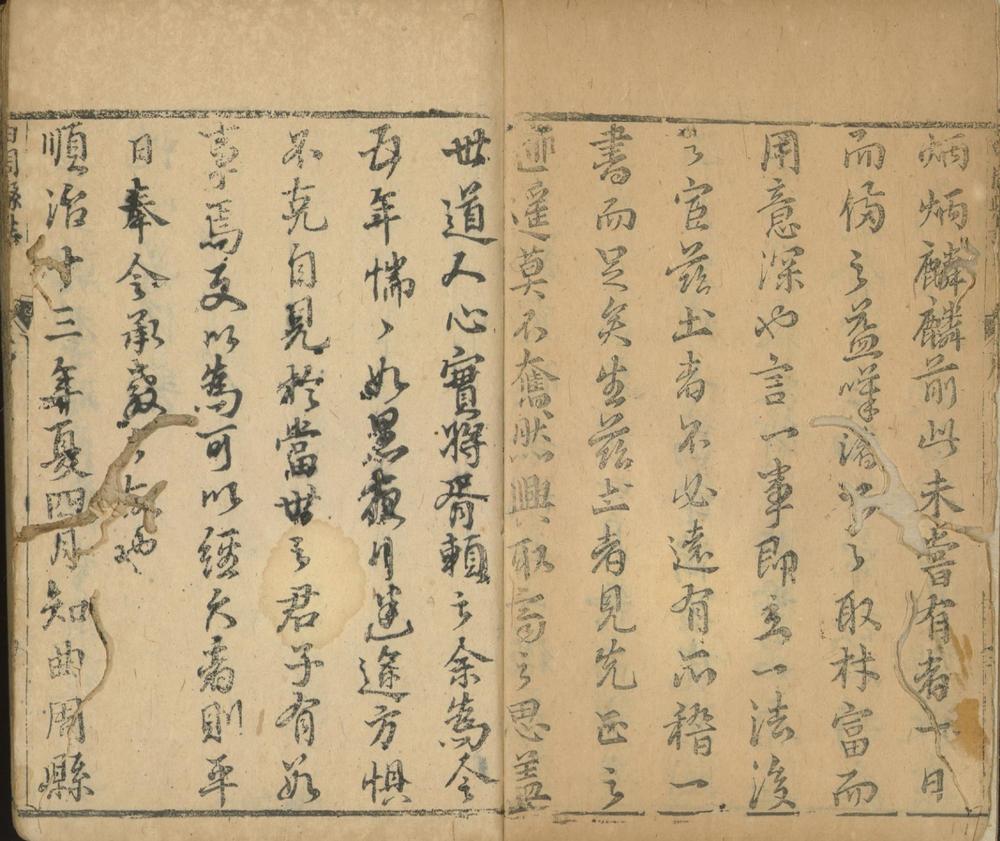 炳炳麟麟前此未嘗有者一日
而備之益嘆潘公之取材富而
用意深也言一事即立一法後
之宦茲土者不必遠有所稽一
書而足矣生茲土者見先正之
迹遥莫不奮然興取高之思蓋
世道人心實將胥賴之余爲令
每年惴丶如黑夜行迷途方惧
不克自見於當世之君子有如
事焉更以爲可以經久者則平
日奉令承教之也
順治十三年夏四月知曲周縣
曲周縣志